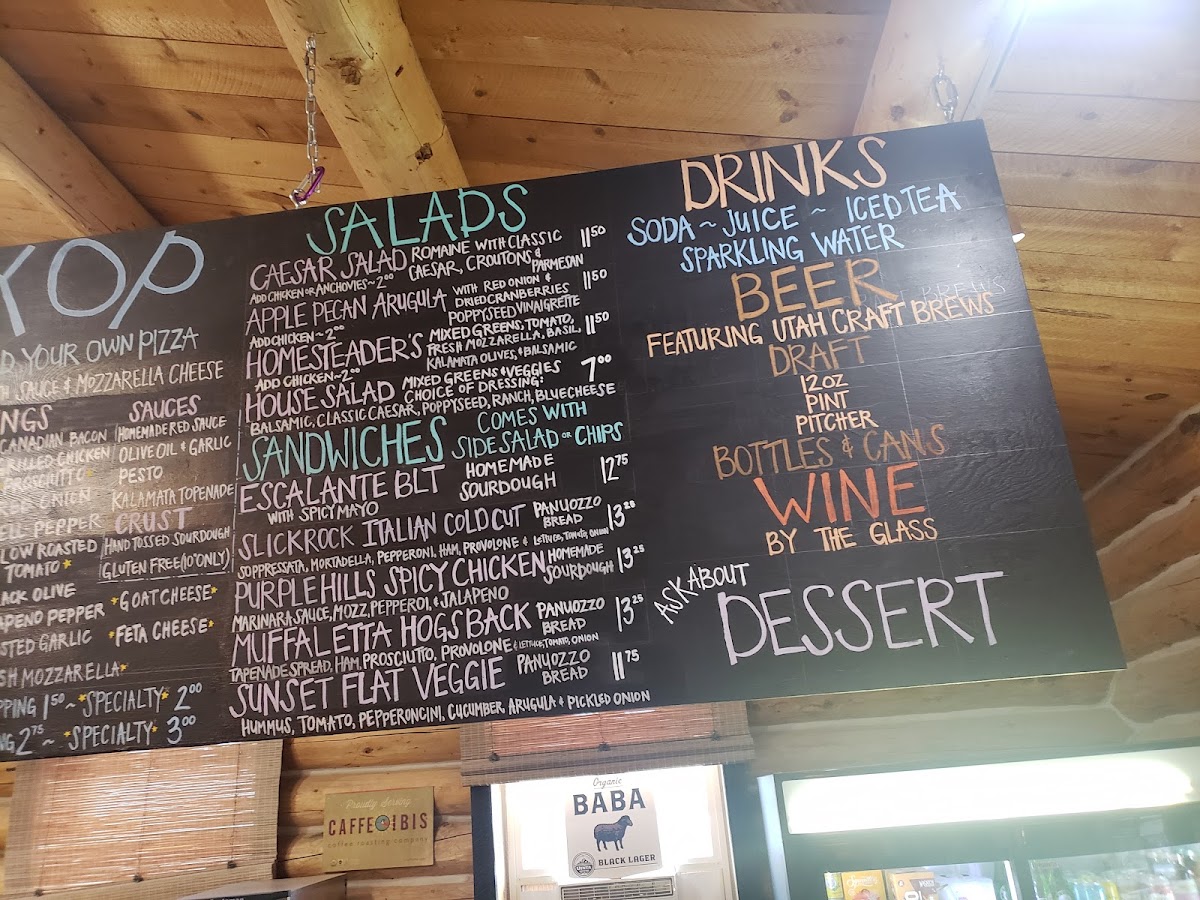 YOP
YOUR OWN PIZZA
SAUCE & MOZZARELLA CHEESE
CANADIAN BACON
GRILLED CHICKEN
PROSCIUTTO*
ONION
BELL PEPPER
SLOW ROASTED
TOMATO*
BLACK OLIVE
PEPPER
GARLIC
MOZZARELLA*
SAUCES
HOMEMADE RED SAUCE
OLIVE OIL & GARLIC
PESTO
KALAMATA TOPENADE
CRUST
HAND TOSSED SOURDOUGH
GLUTEN FREE (10" ONLY)
*GOAT CHEESE*
*FETA CHEESE*
1.50 ~ *SPECIALTY* 2.00
2.75 ~ *SPECIALTY* 3.00
SALADS
CAESAR SALAD ROMAINE WITH CLASSIC 11.50
CAESAR, CROUTONS &
PARMESAN
ADD CHICKEN OR ANCHOVIES ~ 2.00
APPLE PECAN ARUGULA WITH RED ONION & 11.50
DRIED CRANBERRIES
POPPYSEED VINAIGRETTE
ADD CHICKEN ~ 2.00
HOMESTEADER'S MIXED GREENS, TOMATO, 11.50
FRESH MOZZARELLA, BASIL,
KALAMATA OLIVES, & BALSAMIC
ADD CHICKEN ~ 2.00
HOUSE SALAD MIXED GREENS & VEGGIES 7.00
CHOICE OF DRESSING:
BALSAMIC, CLASSIC CAESAR, POPPYSEED, RANCH, BLUE CHEESE
SANDWICHES COMES WITH
SIDE SALAD OR CHIPS
ESCALANTE BLT HOMEMADE 12.75
SOURDOUGH
WITH SPICY MAYO
SLICKROCK ITALIAN COLD CUT PANUOZZO 13.25
BREAD
SOPPRESSATA, MORTADELLA, PEPPERONI, HAM, PROVOLONE & LETTUCE, TOMATO, ONION
PURPLE HILLS SPICY CHICKEN HOMEMADE 13.25
SOURDOUGH
MARINARA SAUCE, MOZZ, PEPPERONI, & JALAPENO
MUFFALETTA HOGSBACK PANUOZZO 13.25
BREAD
TAPENADE SPREAD, HAM, PROSCIUTTO, PROVOLONE & LETTUCE, TOMATO, ONION
SUNSET FLAT VEGGIE PANUOZZO 11.75
BREAD
HUMMUS, TOMATO, PEPPERONCINI, CUCUMBER, ARUGULA & PICKLED ONION
DRINKS
SODA ~ JUICE ~ ICED TEA
SPARKLING WATER
BEER
FEATURING UTAH CRAFT BREWS
DRAFT
12 OZ
PINT
PITCHER
BOTTLES & CANS
WINE
BY THE GLASS
ASK ABOUT
DESSERT
Proudly Serving
CAFFE IBIS
coffee roasting company
Organic
BABA
BLACK LAGER